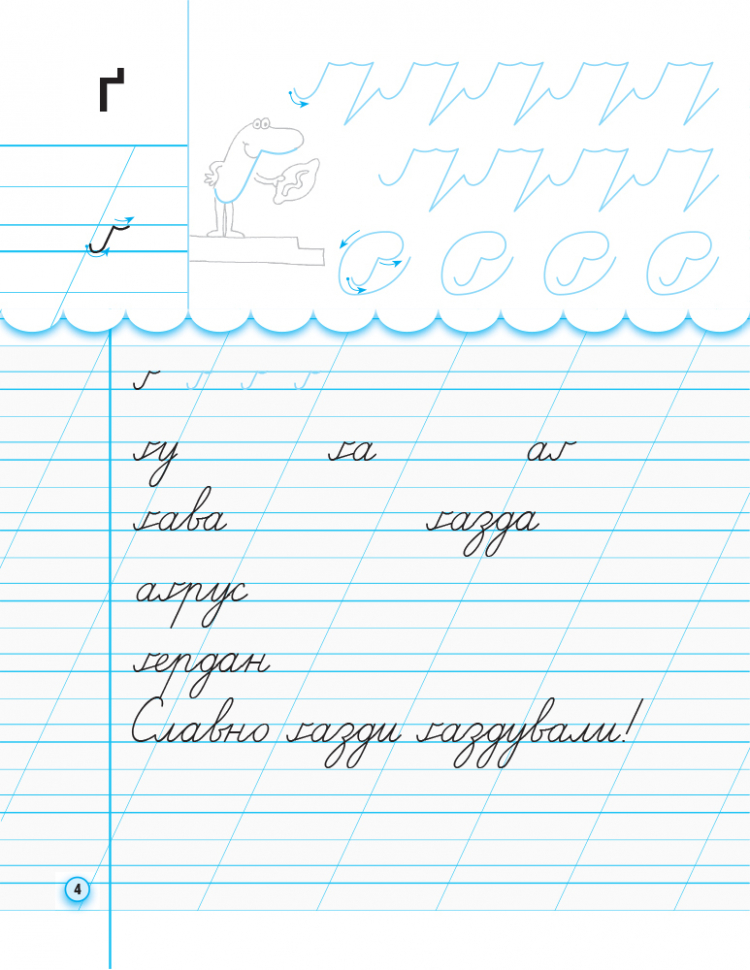 ґ
ґ
ґ ґ ґ ґ
ґу ґа аґ
ґава ґазда
аґрус
ґердан
Славно ґазди ґаздували!
4